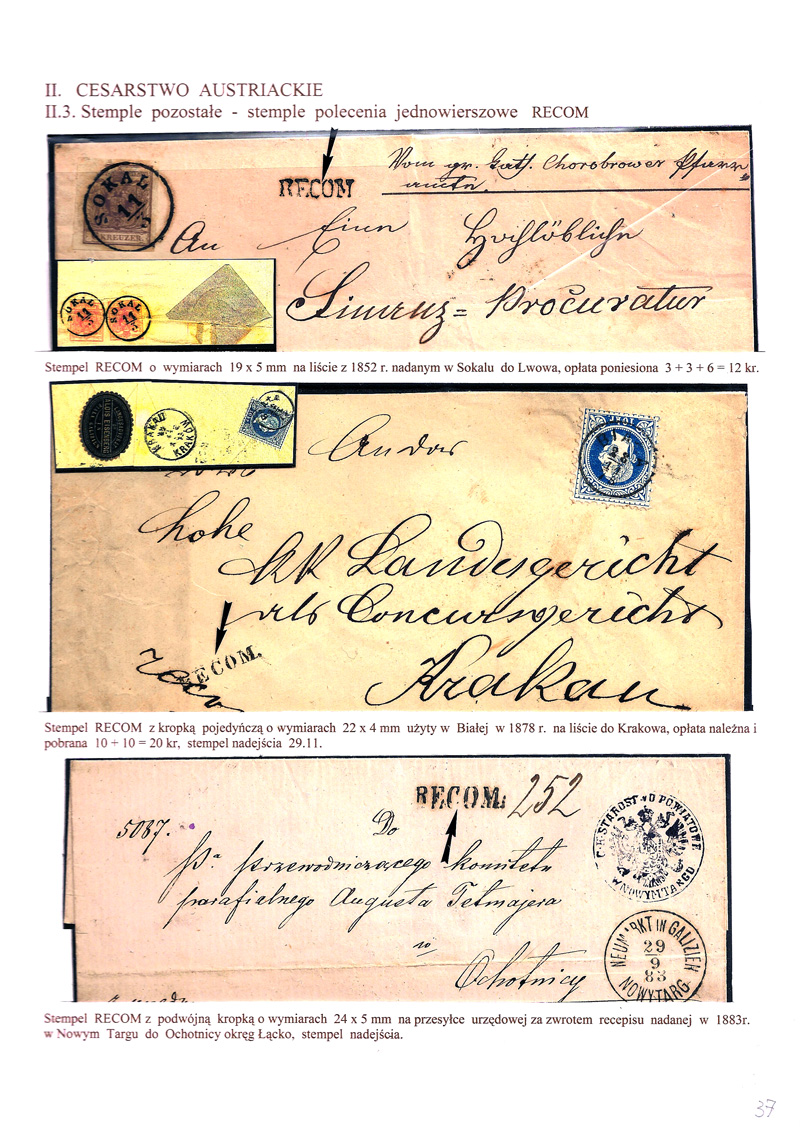 II. CESARSTWO AUSTRIACKIE
II.3. Stemple pozostałe - stemple polecenia jednowierszowe RECOM
SOKAL
11/5
KREUZER
RECOM
Vom gr. Cath. Chorobrower Pfarr
amte
An Eine Hochlöbliche
Finanz= Procuratur
SOKAL
11/5
SOKAL
11/5
Stempel RECOM o wymiarach 19 x 5 mm na liście z 1852 r. nadanym w Sokalu do Lwowa, opłata poniesiona 3 + 3 + 6 = 12 kr.
ALOIS EISENBERG
KRAKAU
KRAKÓW
An das
hohe
KK Landesgericht
als Concursgericht
Krakau
reco
RECOM.
Stempel RECOM z kropką pojedyńczą o wymiarach 22 x 4 mm użyty w Białej w 1878 r. na liście do Krakowa, opłata należna i
pobrana 10 + 10 = 20 kr, stempel nadejścia 29.11.
RECOM: 252
5087.
Do
Pa przewodniczącego komitetu
parafialnego Augusta Tetmajera
w
Ochotnicy
C.K. STAROSTWO POWIATOWE
W NOWYM TARGU
NEUMARKT IN GALIZIEN
29
9
83
NOWYTARG
Stempel RECOM z podwójną kropką o wymiarach 24 x 5 mm na przesyłce urzędowej za zwrotem recepisu nadanej w 1883r.
w Nowym Targu do Ochotnicy okręg Łącko, stempel nadejścia.
37